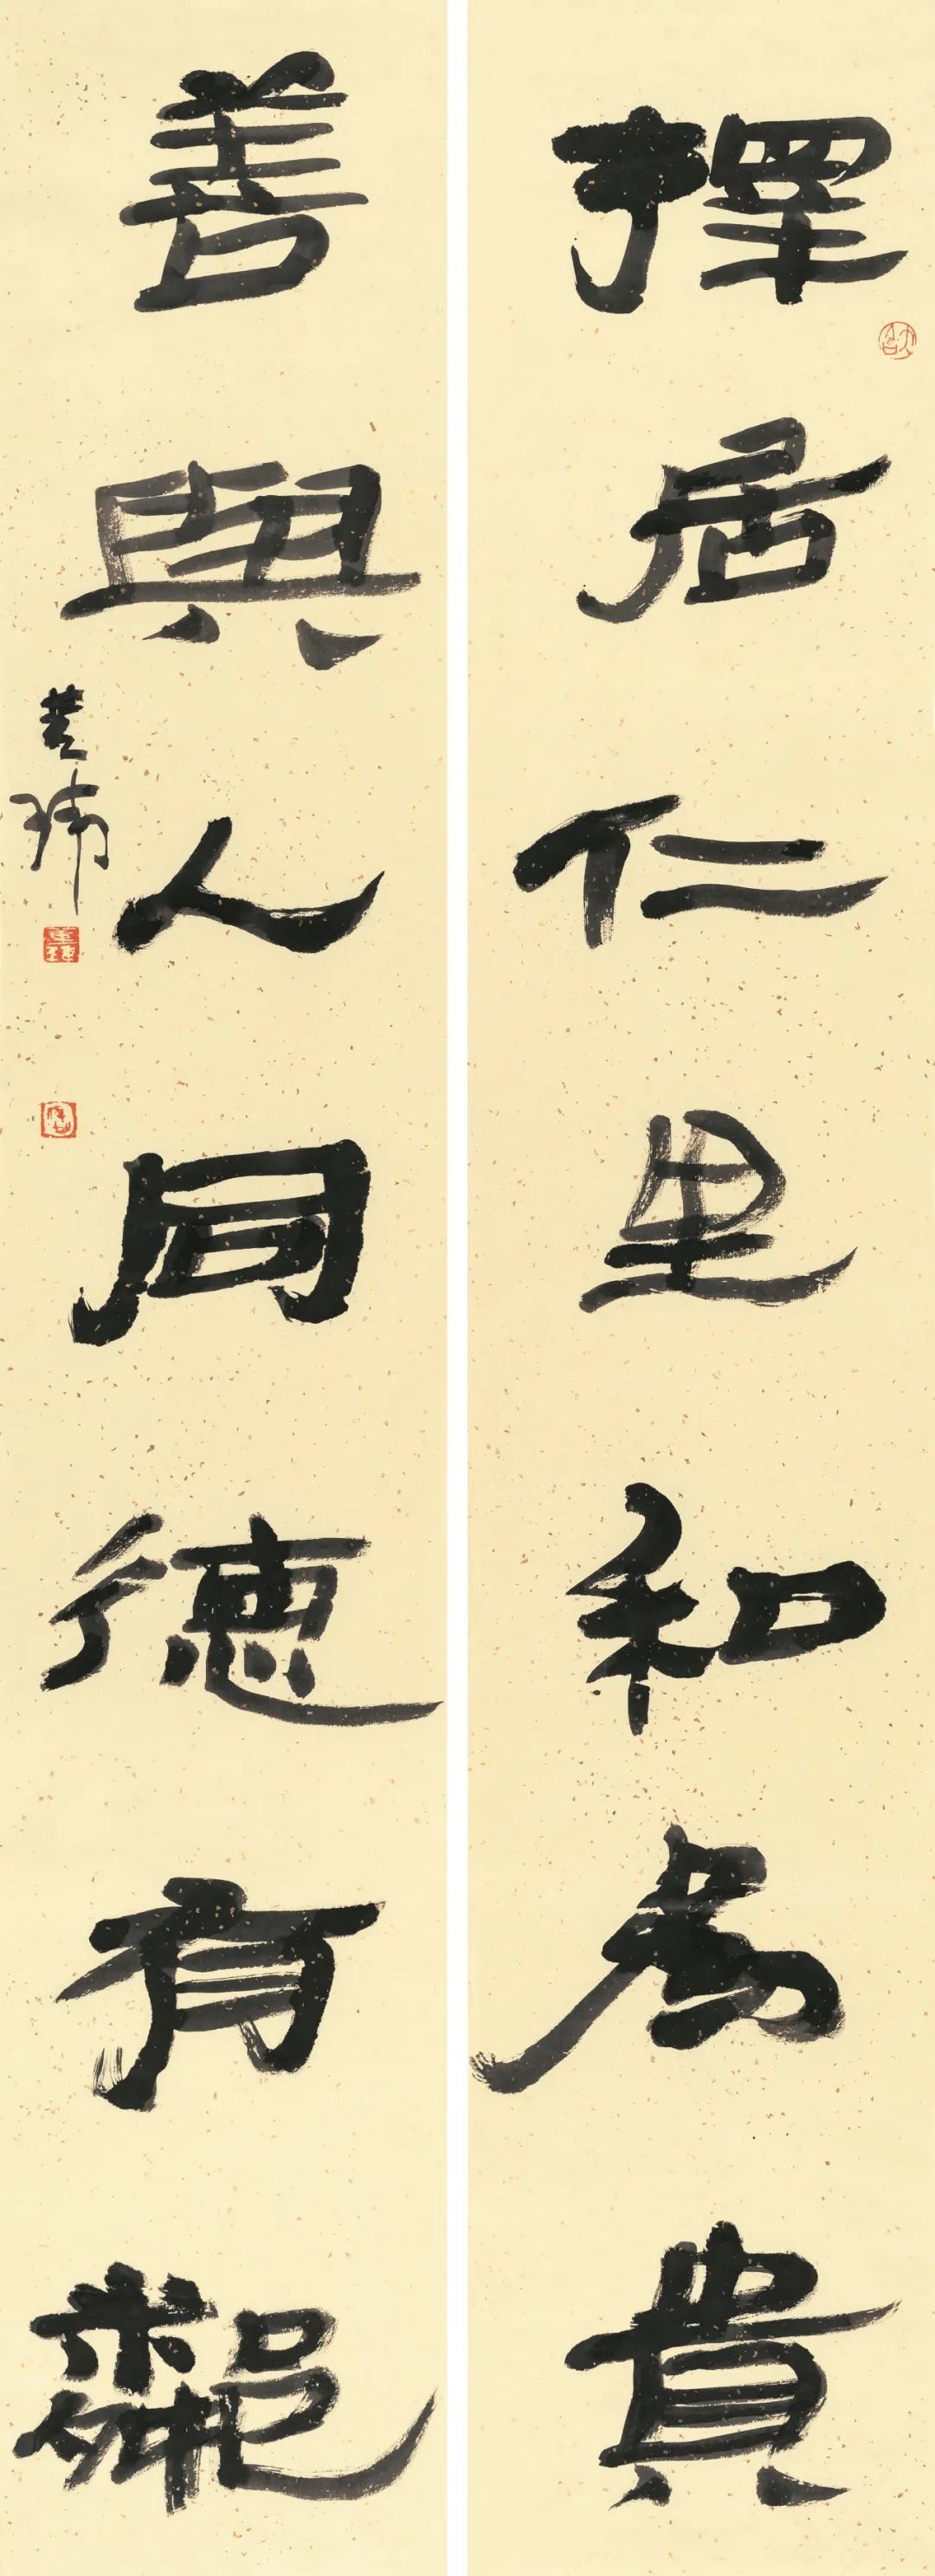 擇居仁里和為貴
善與人同德有鄰